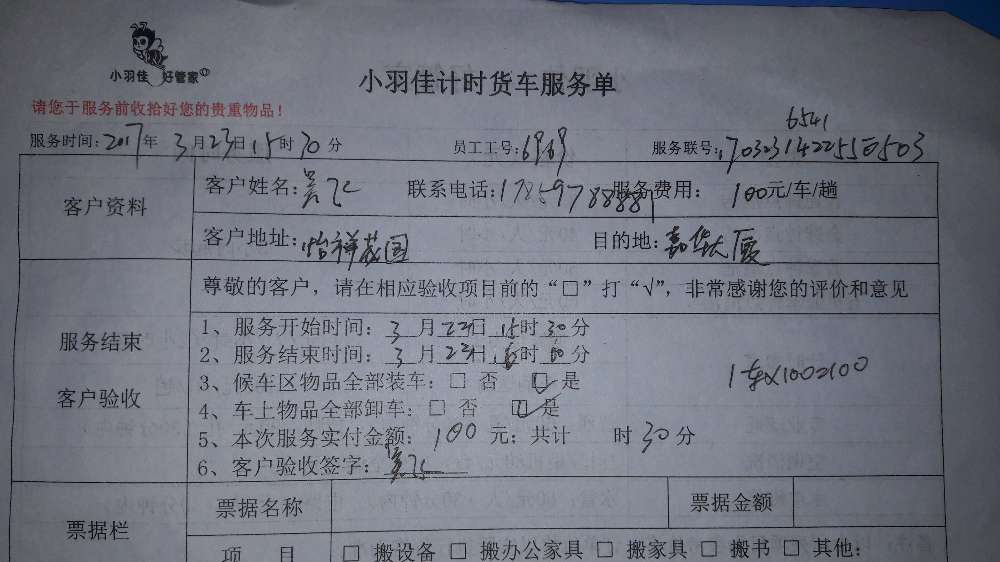 小羽佳 好管家
小羽佳计时货车服务单
请您于服务前收拾好您的贵重物品！
6541
服务时间：2017年 3月23日15时30分 员工工号：6969 服务联号：
客户资料
客户姓名：吴 联系电话：17859788881 服务费用：100元/车/趟
客户地址：怡祥花园 目的地：嘉华大厦
服务结束
客户验收
尊敬的客户，请在相应验收项目前的“□”打“√”，非常感谢您的评价和意见
1、服务开始时间：3月23日15时30分
2、服务结束时间：3月23日 时00分
3、候车区物品全部装车：□ 否 ☑ 是
4、车上物品全部卸车：□ 否 ☑ 是
5、本次服务实付金额：100元；共计 时30分
6、客户验收签字：吴
1车×100=100
票据栏
票据名称 票据金额
项 目 □ 搬设备 □ 搬办公家具 □ 搬家具 □ 搬书 □ 其他：